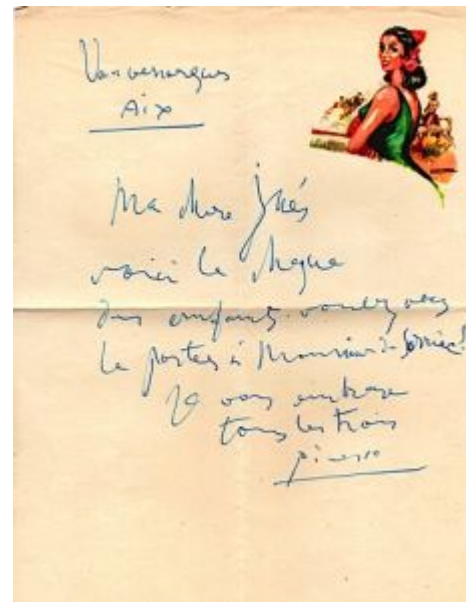 Vauvenargues
Aix
Ma chere Inés
voici le cheque
des enfants. voulez vous
le porter à Monsieur de
Je vous embrasse
tous les trois
Picasso